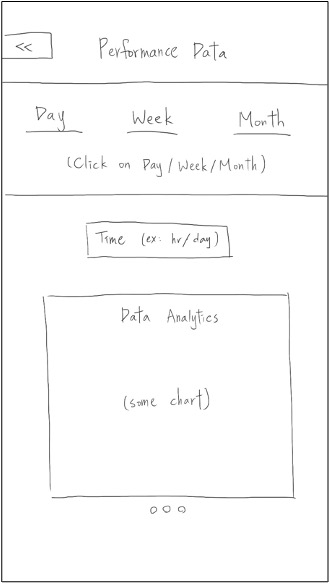 <<
Performance Data
Day Week Month
(Click on Day/Week/Month)
Time (ex: hr/day)
Data Analytics
(some chart)